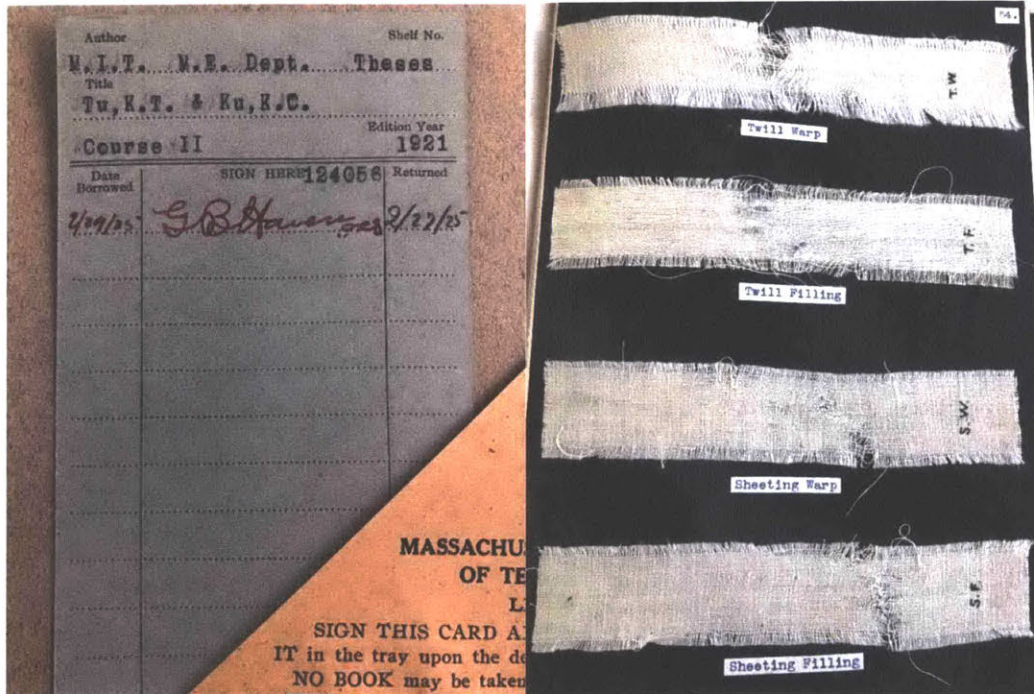 Author Shelf No.
M.I.T. M.E. Dept. Theses
Title
Tu,K.T. & Ku,K.C.
Edition Year
Course II 1921
Date Borrowed SIGN HERE 124056 Returned
G B Haven 2/27/25
MASSACHU
OF TE
LI
SIGN THIS CARD A
IT in the tray upon the de
NO BOOK may be taken
54.
T.W
Twill Warp
T.F.
Twill Filling
S.W.
Sheeting Warp
S.F.
Sheeting Filling